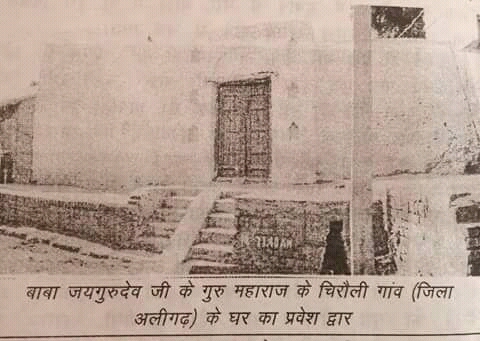 बाबा जयगुरुदेव जी के गुरु महाराज के चिरौली गांव (जिला
अलीगढ़) के घर का प्रवेश द्वार